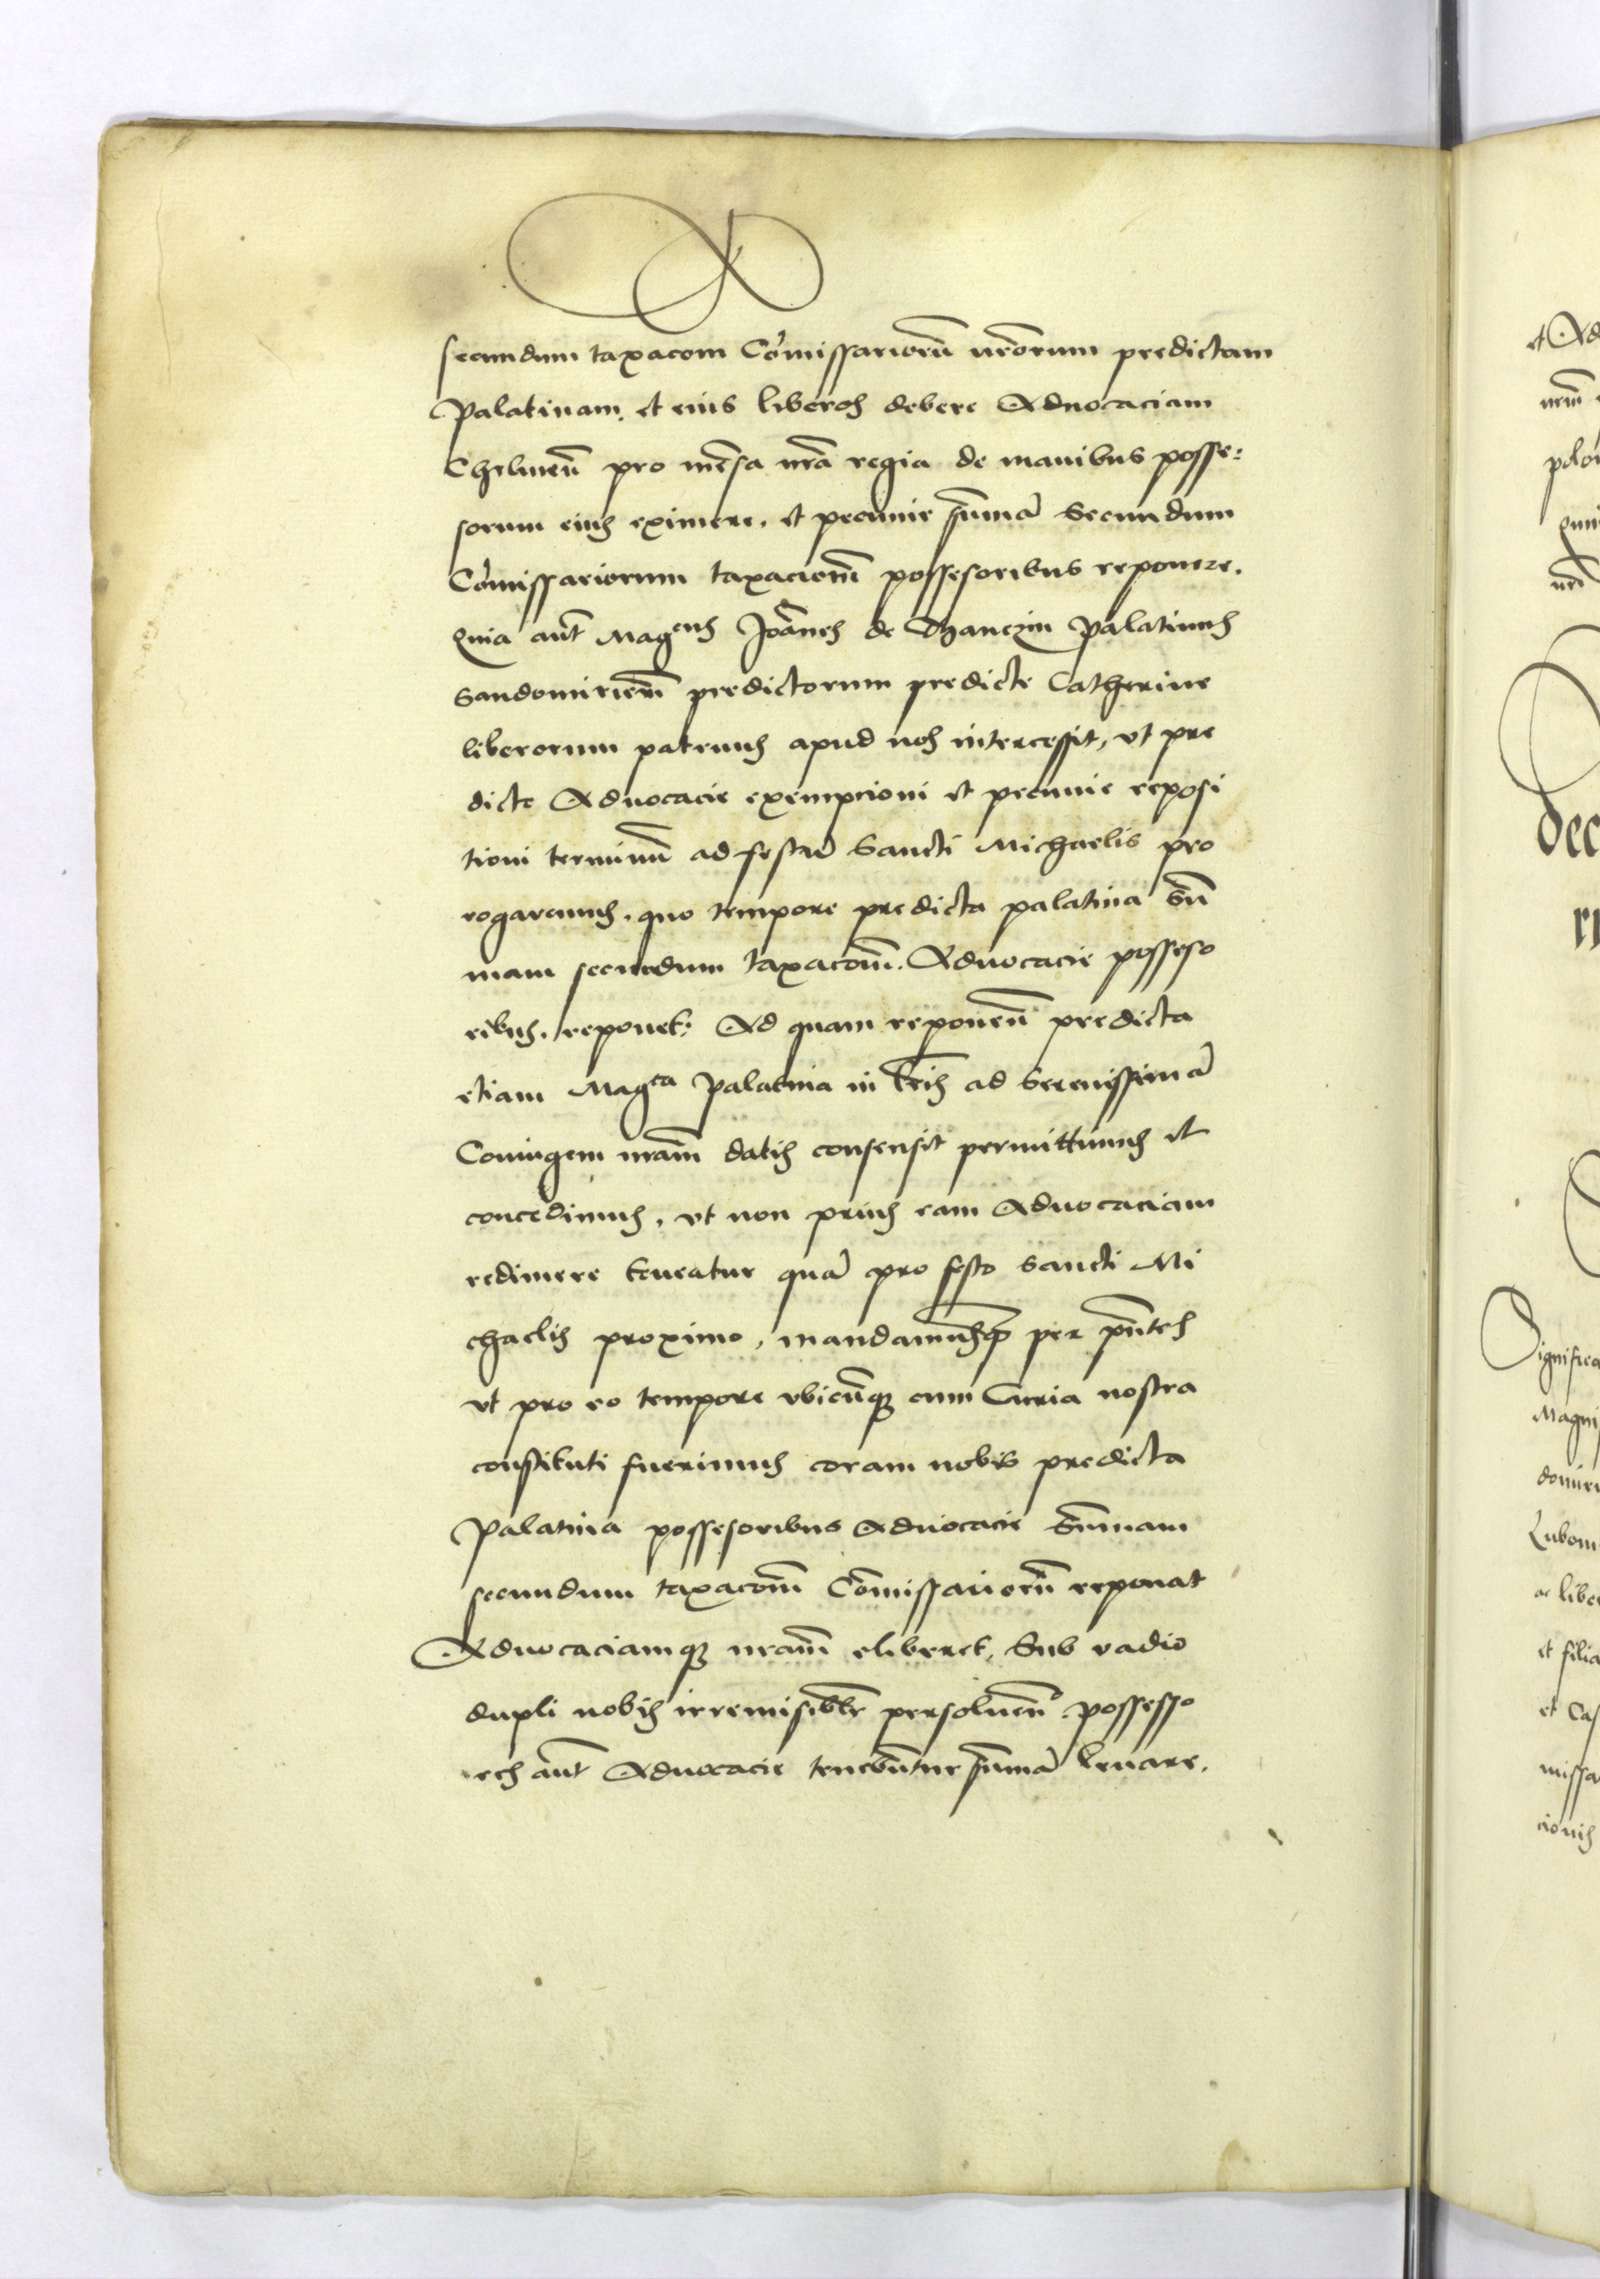 secundum taxacom Comissarioru nrorum predictam
Palatinam. et eius liberos debere Aduocaciam
Chelmen pro mensa nra regia de manibus posse:
sorum eius eximere. et pecunie suma Secundum
Comissariorum taxacionem possesoribus reponere.
Quia aut Magcus Joannes de Thanczin Palatinus
Sandomirien predictorum predicte Catherine
liberorum patruus apud nos intercessit, vt pre
dicte Aduocacie exempcioni et pecunie reposi
tioni terminu ad festu Sancti Michaelis pro
rogaremus. quo tempore predicta palatina Sum
mam secundum taxacom. Aduocacie posseso
ribus. reponet: Ad quam reponen predicta
etiam Magca Palatina in lris ad Serenissima
Coniugem nram datis consensit permittimus et
concedimus, vt non prius eam Aduocaciam
redimere teneatur qua pro festo Sancti Mi
chaelis proximo, mandamusq per pntes
vt pro eo tempore vbicunq cum Curia nostra
constituti fuerimus coram nobis predicta
Palatina possesoribus Aduocacie Summam
secundum taxacom Comissarioru reponat
Aduocaciamq nram eliberet, Sub vadio
dupli nobis irremisiblr persoluen. possesso
res aut Aduocacie tenebuntur suma leuare.
et Ad
nrm
polon
nri
Dec
Significa
Magni
domiri
Lubom
ac libe
et filia
et Cas
missa
cionis